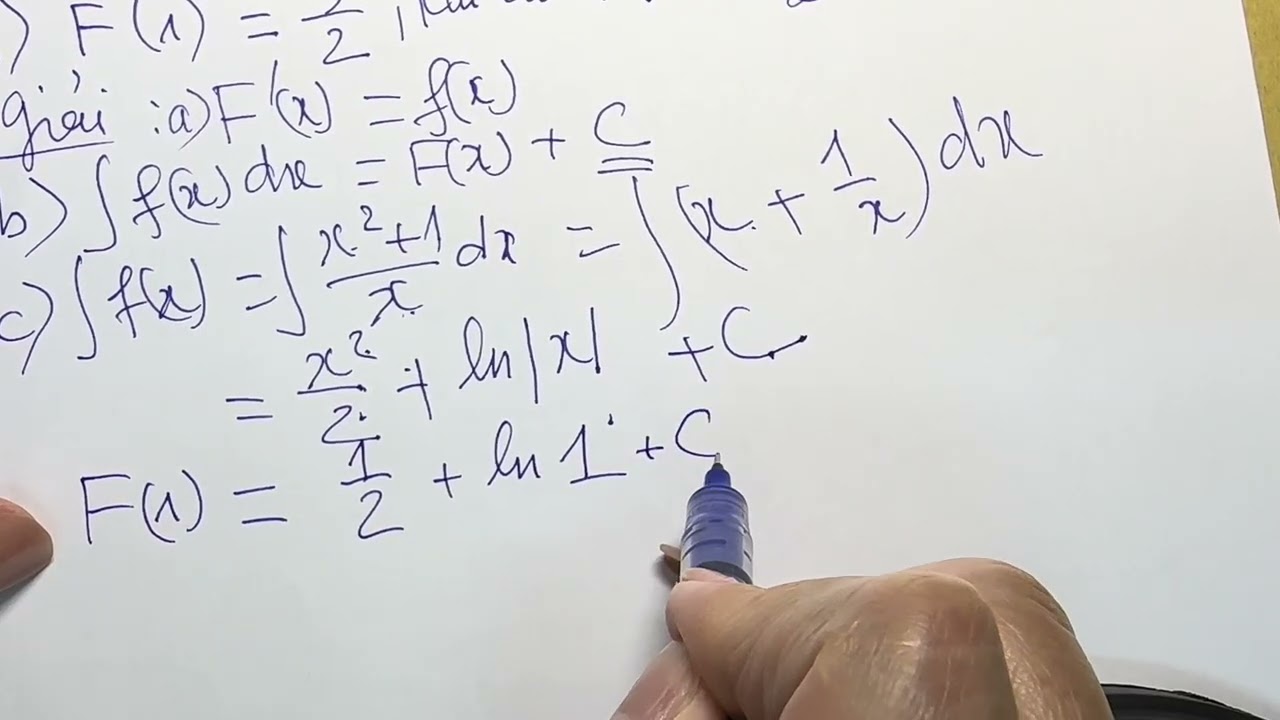 ) F(1) = /2 ,
Giải : a) F'(x) = f(x)
b) ∫ f(x) dx = F(x) + C
c) ∫ f(x) = ∫ (x²+1)/x dx = ∫ (x + 1/x) dx
= x²/2 + ln|x| + C
F(1) = 1/2 + ln 1 + C